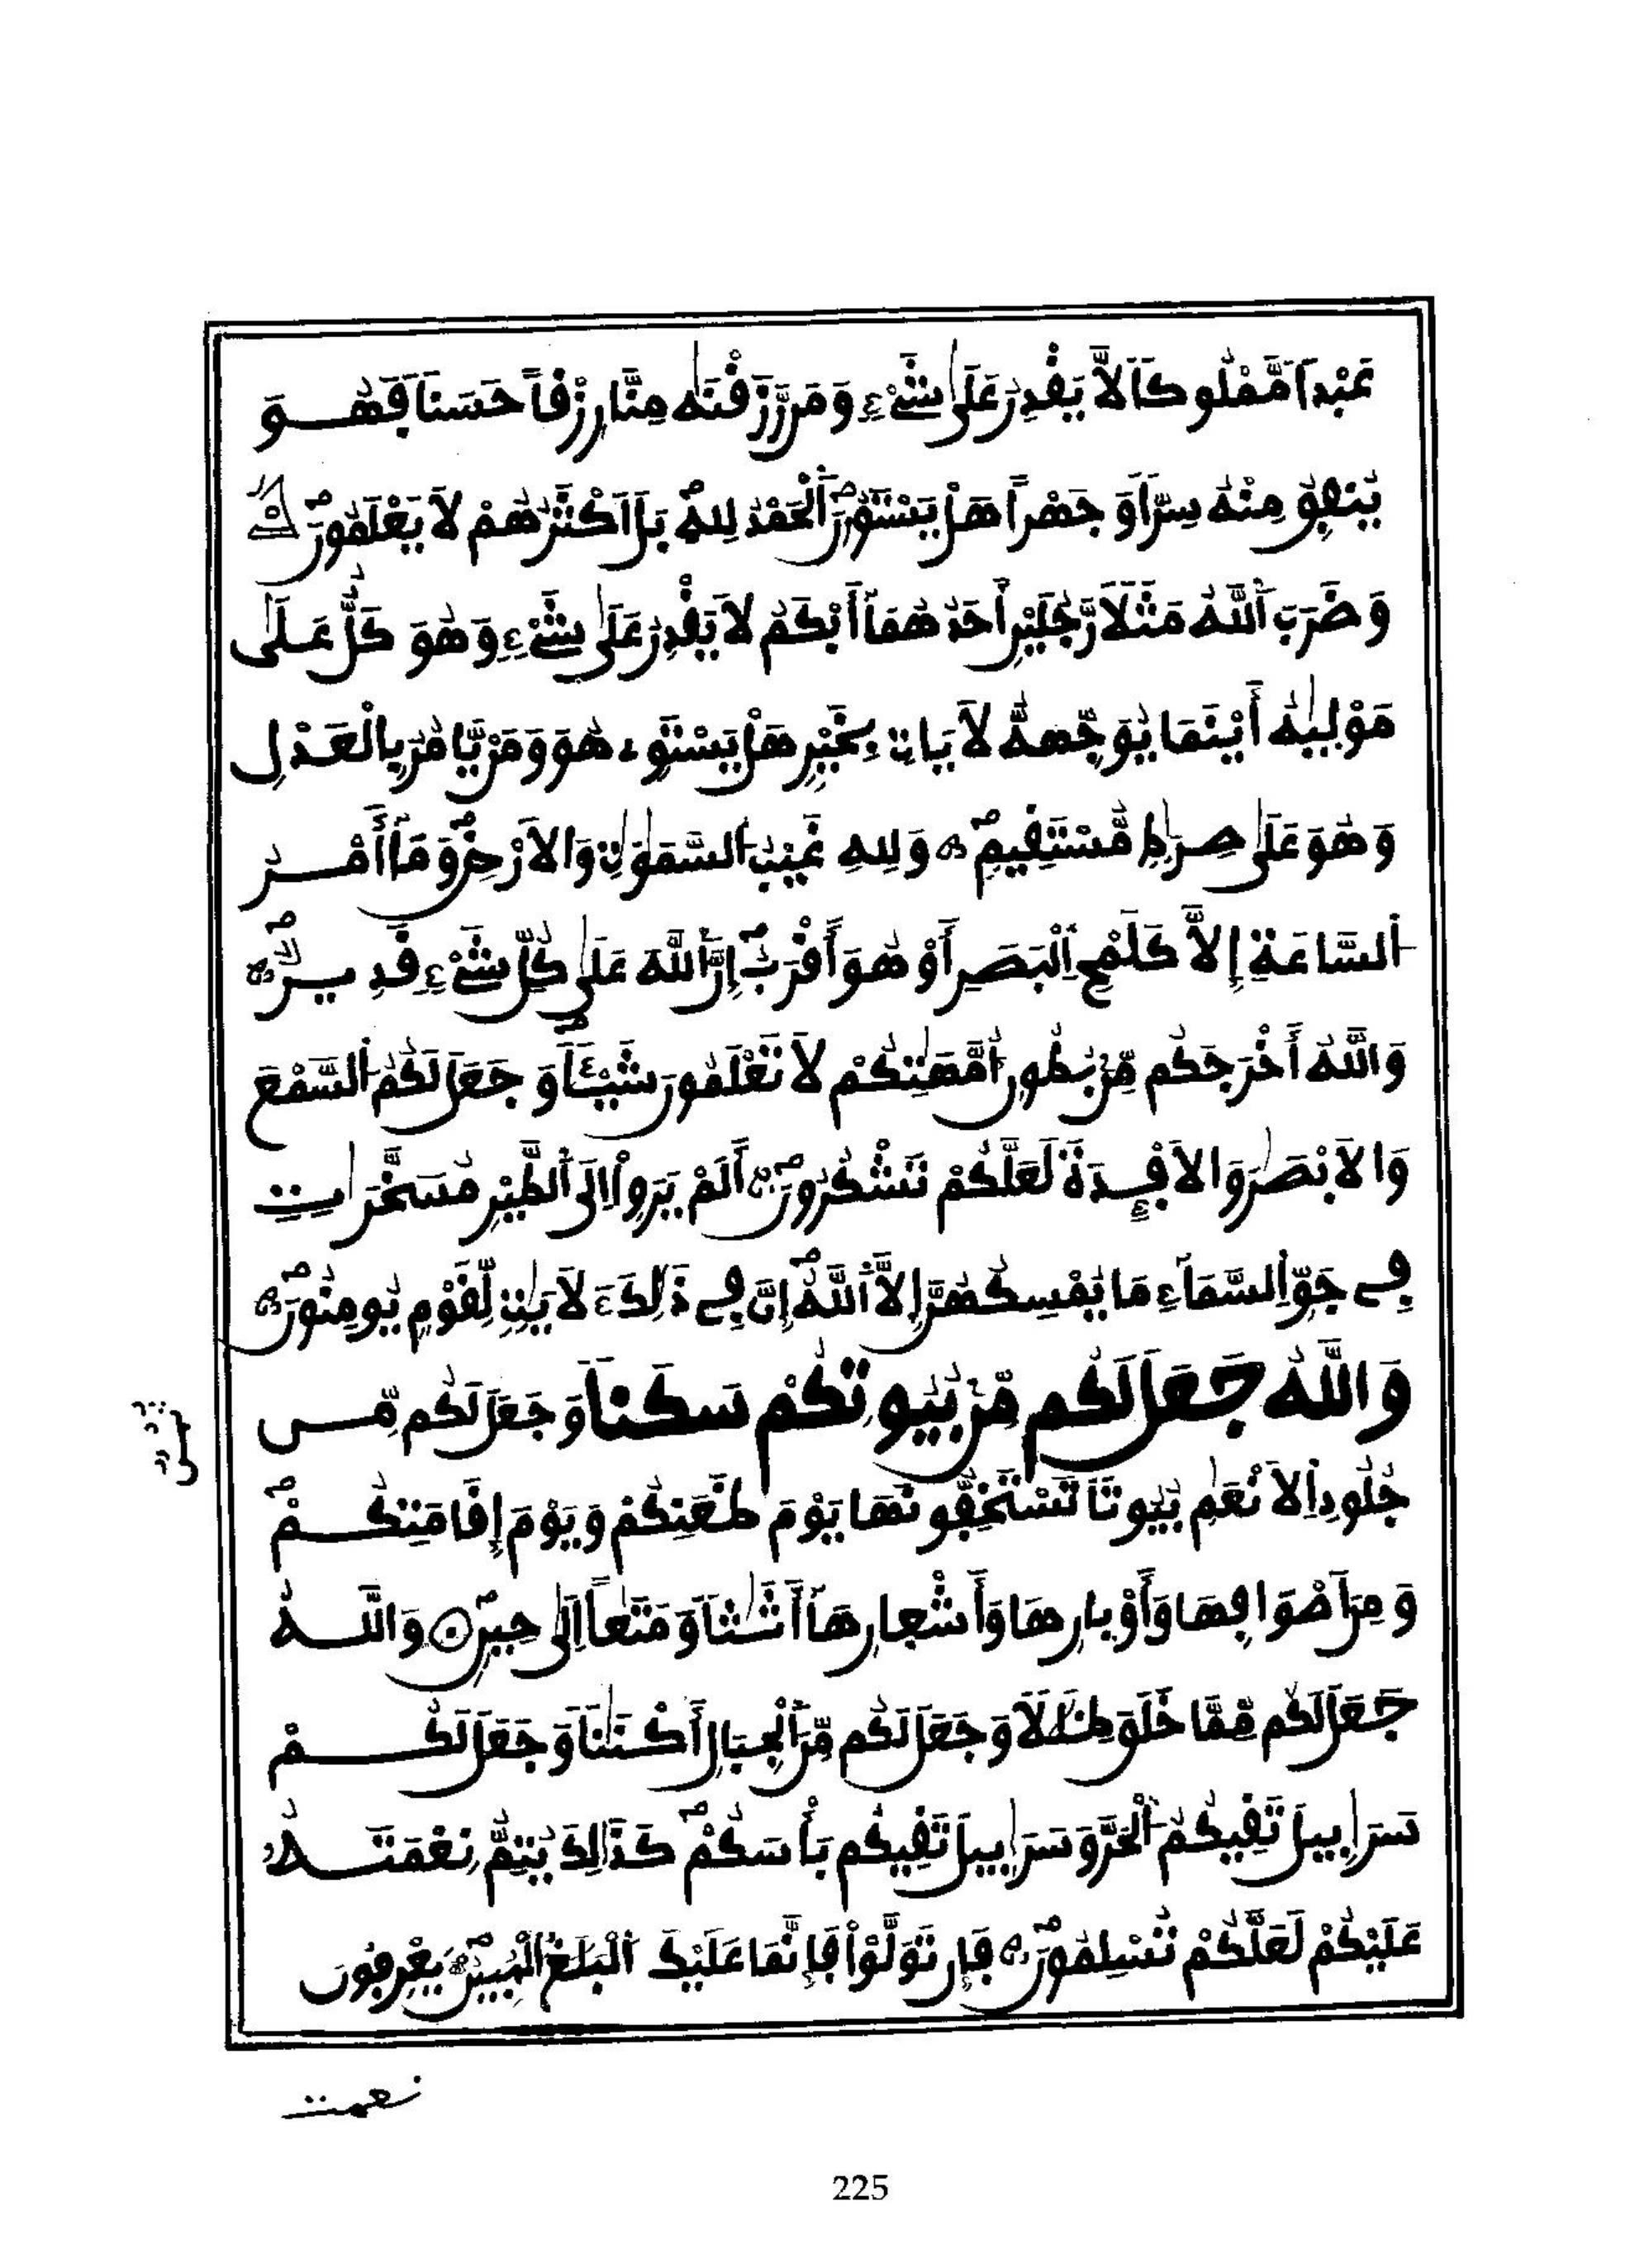 عَبْداً مَّمْلُوكاً لاَّ يَقْدِرُ عَلَىٰ شَےْءٍ وَمَن رَّزَقْنَٰهُ مِنَّا رِزْقاً حَسَناً فَهُوَ
يُنفِقُ مِنْهُ سِرّاً وَجَهْراً هَلْ يَسْتَوُۥنَ اَ۬لْحَمْدُ لِلهِ بَلَ اَكْثَرُهُمْ لاَ يَعْلَمُونَ
وَضَرَبَ اَ۬للَّهُ مَثَلاً رَّجُلَيْنِ أَحَدُهُمَآ أَبْكَمُ لاَ يَقْدِرُ عَلَىٰ شَےْءٍ وَهُوَ كَلٌّ عَلَىٰ
مَوْلَيٰهُ أَيْنَمَا يُوَجِّههُّ لاَ يَاتِ بِخَيْرٍ هَلْ يَسْتَوِے هُوَ وَمَنْ يَّامُرُ بِالْعَدْلِ
وَهُوَ عَلَىٰ صِرَٰطٍ مُّسْتَقِيمٍ وَلِلهِ غَيْبُ اُ۬لسَّمَٰوَٰتِ وَالاَرْضِ وَمَآ أَمْرُ
اُ۬لسَّاعَةِ إِلاَّ كَلَمْحِ اِ۬لْبَصَرِ أَوْ هُوَ أَقْرَبُ إِنَّ اَ۬للَّهَ عَلَىٰ كُلِّ شَےْءٍ قَدِيرٌ
وَاللَّهُ أَخْرَجَكُم مِّنۢ بُطُونِ أُمَّهَٰتِكُمْ لاَ تَعْلَمُونَ شَيْـٔاً وَجَعَلَ لَكُمُ اُ۬لسَّمْعَ
وَالاَبْصَٰرَ وَالاَفْـِٕدَةَ لَعَلَّكُمْ تَشْكُرُونَ أَلَمْ يَرَوِاْ اِلَى اَ۬لطَّيْرِ مُسَخَّرَٰتٍ
فِے جَوِّ اِ۬لسَّمَآءِ مَا يُمْسِكُهُنَّ إِلاَّ اَ۬للَّهُ إِنَّ فِے ذَٰلِكَ ءَلاَيَٰتٍ لِّقَوْمٍ يُومِنُونَ
وَاللَّهُ جَعَلَ لَكُم مِّنۢ بُيُوتِكُمْ سَكَناً وَجَعَلَ لَكُم مِّن
جُلُودِ اِ۬لاَنْعَٰمِ بُيُوتاً تَسْتَخِفُّونَهَا يَوْمَ ظَعَنِكُمْ وَيَوْمَ إِقَامَتِكُمْ
وَمِنَ اَصْوَافِهَا وَأَوْبارِهَا وَأَشْعارِهَآ أَثَٰثاً وَمَتَٰعاً اِلَىٰ حِينٍ وَاللَّهُ
جَعَلَ لَكُم مِّمَّا خَلَقَ ظِلَٰلاً وَجَعَلَ لَكُم مِّنَ اَ۬لْجِبَالِ أَكْنَٰناً وَجَعَلَ لَكُمْ
سَرَٰبِيلَ تَقِيكُمُ اُ۬لْحَرَّ وَسَرَٰبِيلَ تَقِيكُم بَأْسَكُمْ كَذَٰلِكَ يُتِمُّ نِعْمَتَهُۥ
عَلَيْكُمْ لَعَلَّكُمْ تُسْلِمُونَ فَإِن تَوَلَّوْاْ فَإِنَّمَا عَلَيْكَ اَ۬لْبَلَٰغُ اُ۬لْمُبِينُ يَعْرِفُونَ
نعمت
225